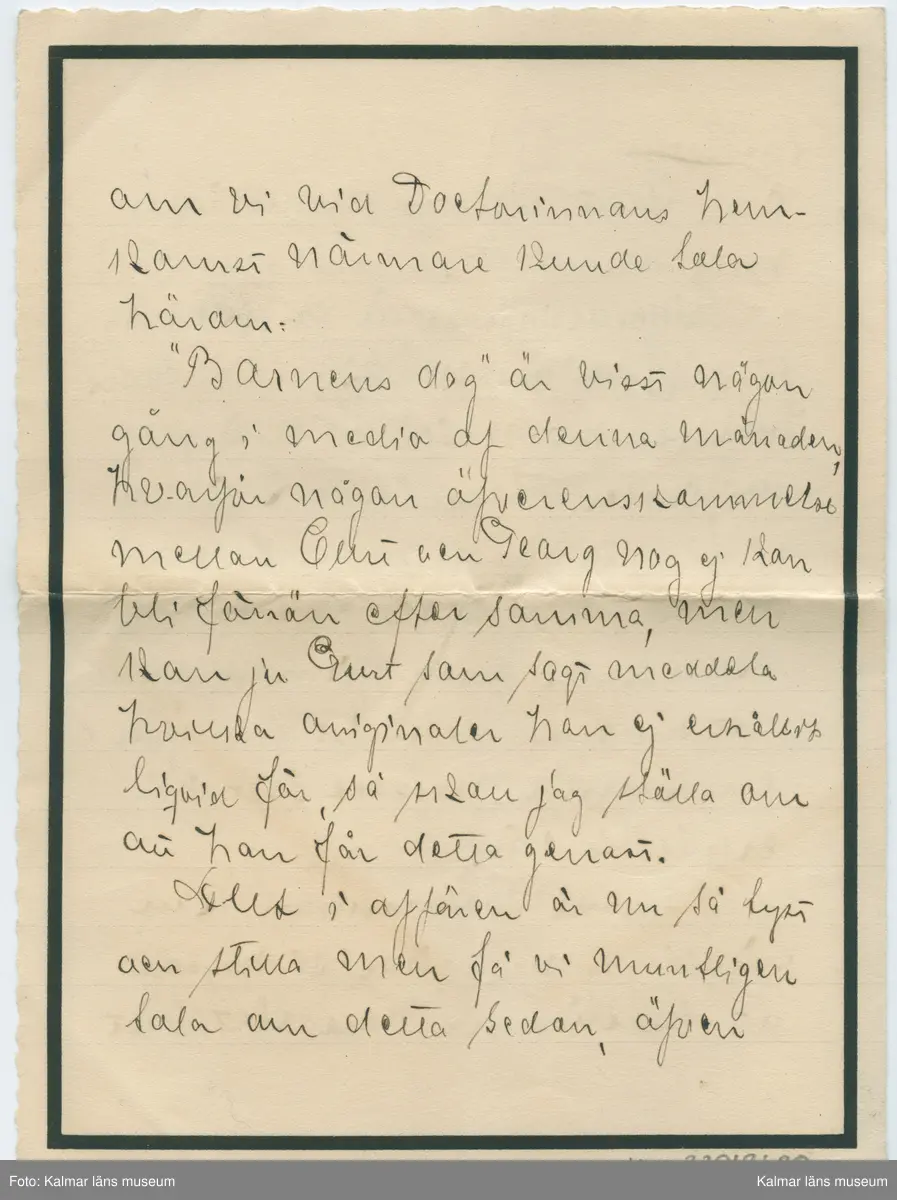 om vi vid Doctorinnans hem-
komst närmare kunde tala
härom.
"Barnens dag" är visst någon
gång i media af denna månaden,
hvarför någon öfverenskommelse
mellan Curt och Georg nog ej kan
bli förrän efter samma, men
kan ju Curt som sagt meddela
hvilka originaler han ej erhållit
liqvid för, så skan jag ställa om
att han får detta genast.
Allt i affären är nu så tyst
och stilla men få vi muntligen
tala om detta sedan, äfven
Foto: Kalmar läns museum
Kalmar läns museum